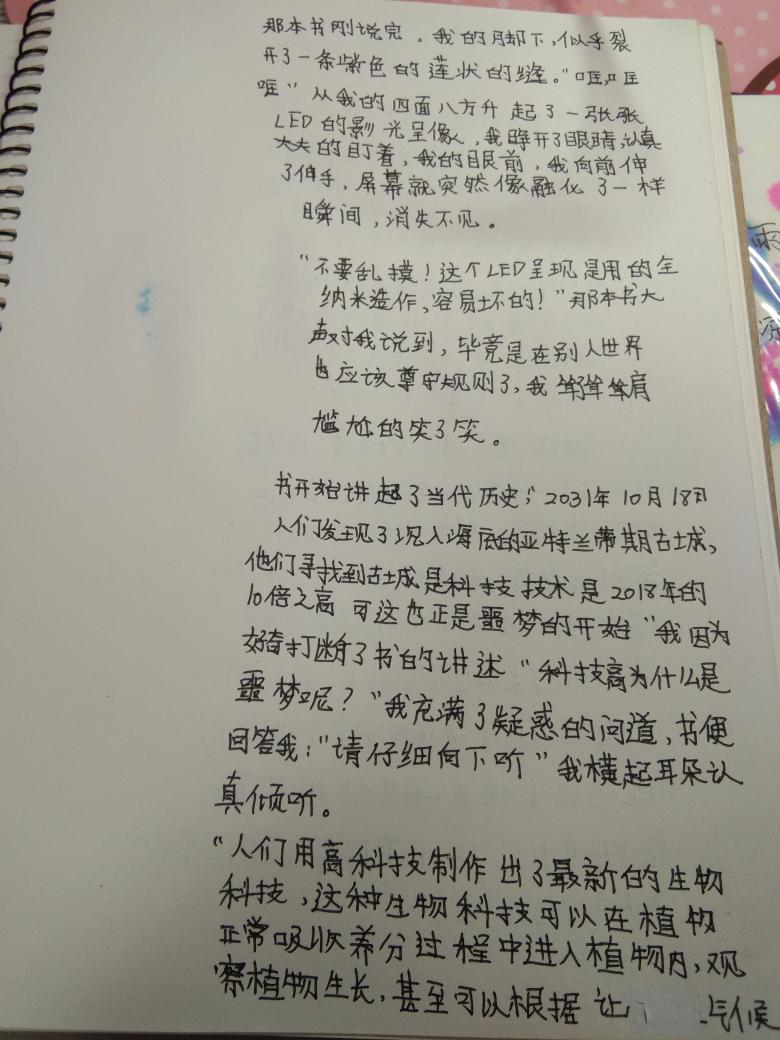 那本书刚说完，我的脚下，似乎裂
开了一条紫色的莲状的缝。"哐，哐
哐"从我的四面八方升起了一张张
LED的影光呈像，我睁开了眼睛，认真
大大的盯着，我的眼前，我向前伸
了伸手，屏幕就突然像融化了一样
瞬间，消失不见。
"不要乱摸！这个LED呈现是用的全
纳米造作，容易坏的！"那本书大
声对我说到，毕竟是在别人世界
也应该尊守规则了，我耸耸肩
尴尬的笑了笑。
书开始讲起了当代历史；2031年10月18日
人们发现了沉入海底的亚特兰蒂期古城，
他们寻找到古城是科技技术是2018年的
10倍之高 可这也正是噩梦的开始"我因为
好奇打断了书的讲述"科技高为什么是
噩梦呢？"我充满了疑惑的问道，书便
回答我："请仔细向下听"我横起耳朵认
真倾听。
"人们用高科技制作出了最新的生物
科技，这种生物科技可以在植物
正常吸收养分过程中进入植物内，观
察植物生长，甚至可以根据让 气候
雨